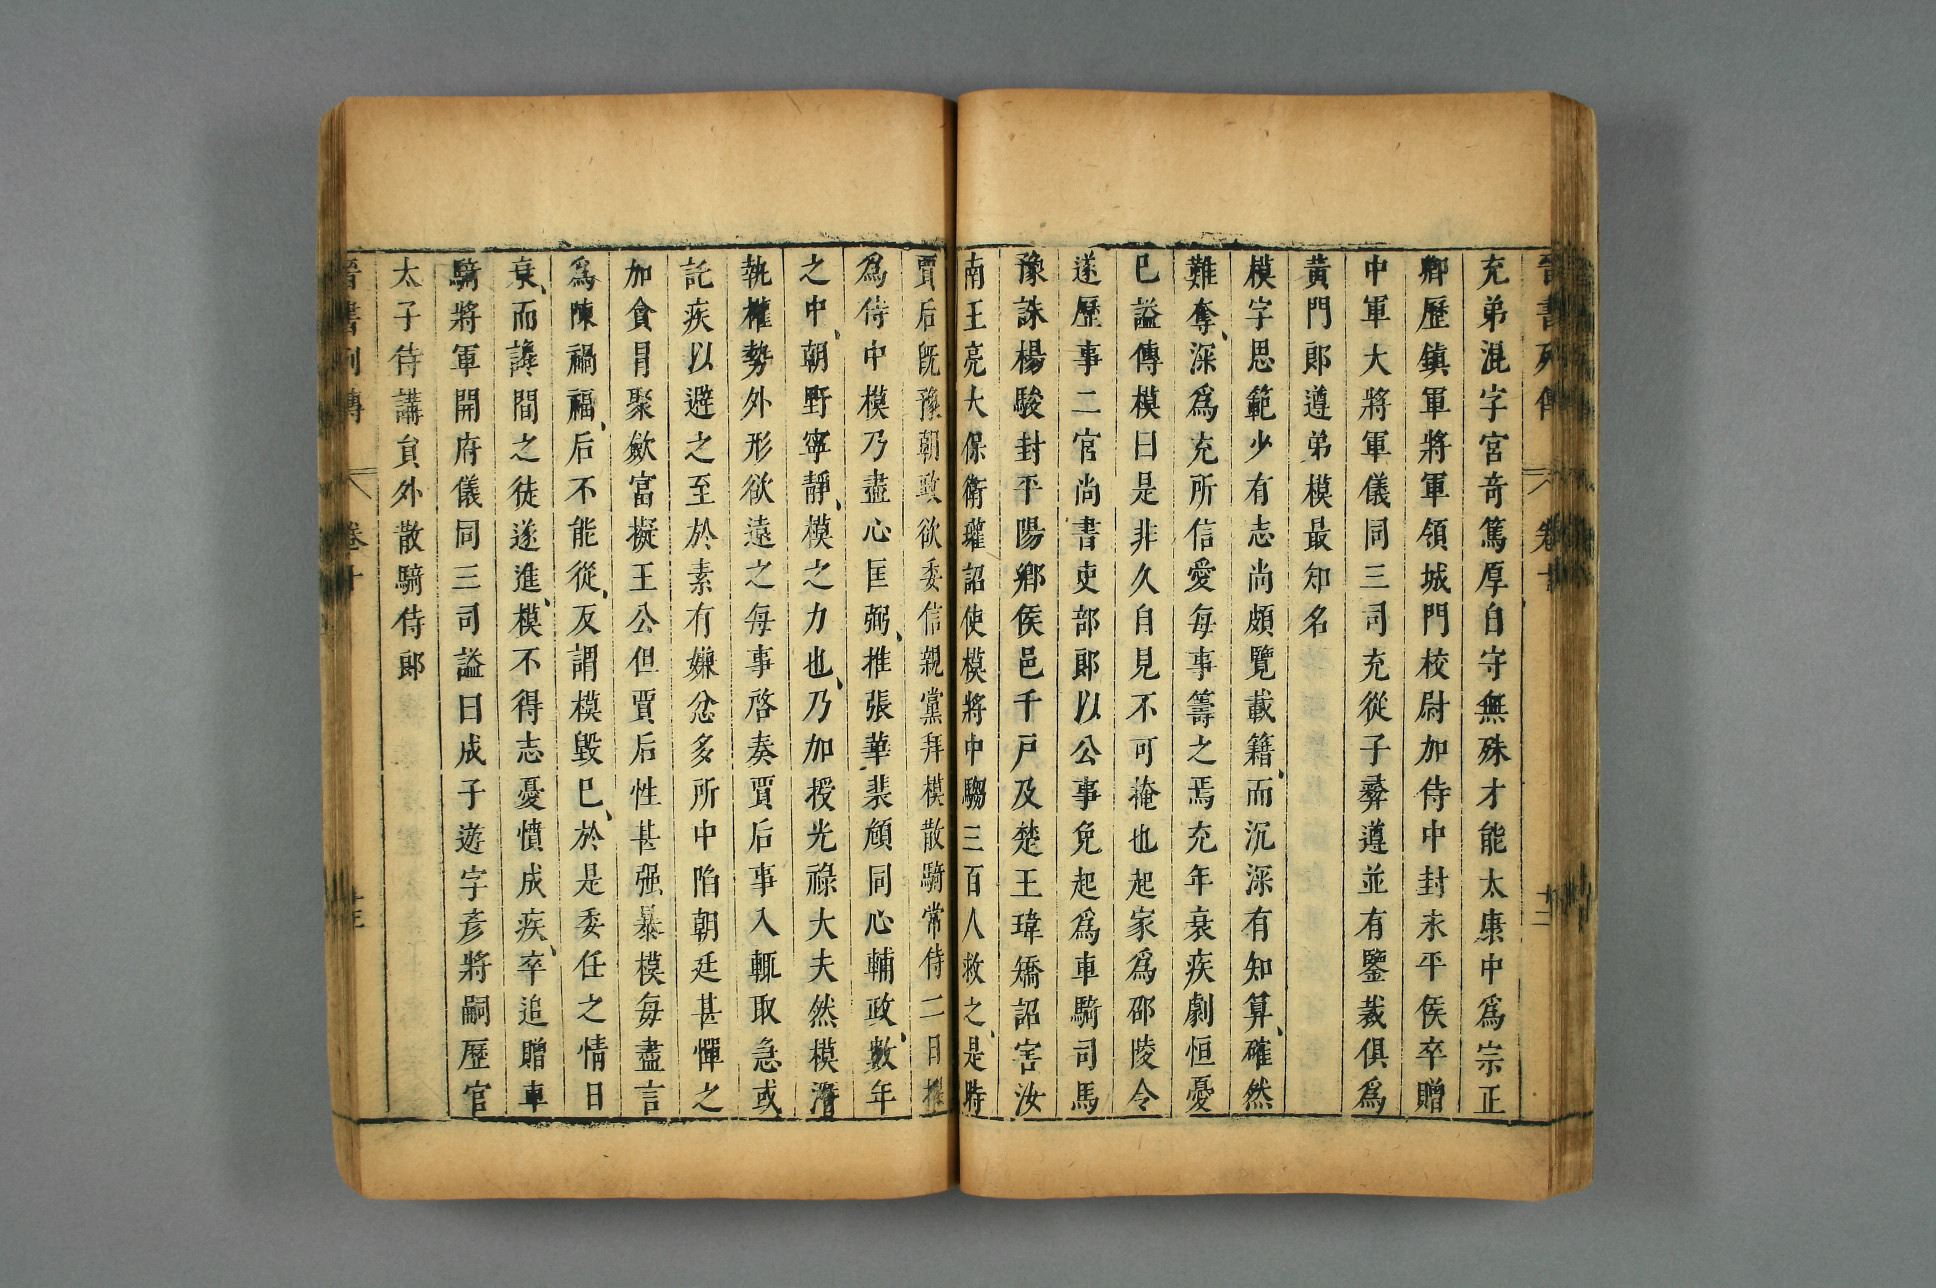 晉書列傳 卷十
充弟混字宮奇篤厚自守無殊才能太康中爲宗正
卿歷鎮軍將軍領城門校尉加侍中封永平侯卒贈
中軍大將軍儀同三司充從子彝遵並有鑒裁俱爲
黃門郎遵弟模最知名
模字思範少有志尚頗覽載籍而沉深有知算確然
難奪深爲充所信愛每事籌之焉充年衰疾劇恒憂
已謚傳模曰是非久自見不可掩也起家爲邵陵令
遂歷事二官尚書吏部郎以公事免起爲車騎司馬
豫誅楊駿封平陽鄉侯邑千戶及楚王瑋矯詔害汝
南王亮大保衛瓘詔使模將中騶三百人救之是時
賈后旣豫朝政欲委信親黨拜模散騎常侍二日擢
爲侍中模乃盡心匡弼推張華裴頠同心輔政數年
之中朝野寧靜模之力也乃加授光祿大夫然模潛
執權勢外形欲遠之每事啓奏賈后事入輒取急或
託疾以避之至於素有嫌忿多所中陷朝廷甚憚之
加貪冒聚斂富擬王公但賈后性甚强暴模每盡言
爲陳禍福后不能從反謂模毀已於是委任之情日
衰而讒間之徒遂進模不得志憂憤成疾卒追贈車
騎將軍開府儀同三司謚曰成子遊字彥將嗣歷官
太子侍講員外散騎侍郎
晉書列傳 卷十